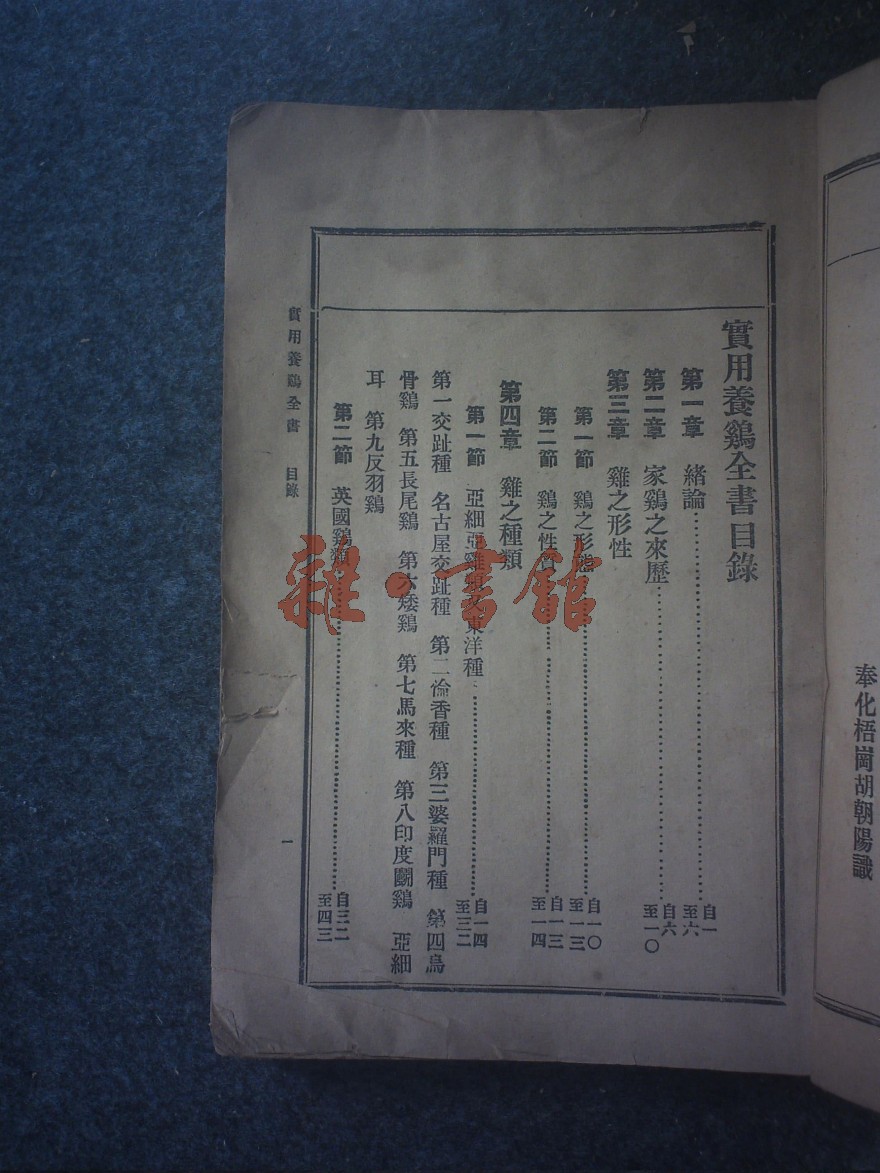 奉化梧崗胡朝陽識
實用養鷄全書目錄
第一章 緒論 自一至六
第二章 家鷄之來歷 自六至一〇
第三章 雞之形性
第一節 鷄之形態 自一〇至一三
第二節 鷄之性質 自一三至一四
第四章 雞之種類
第一節 亞細亞雞類又東洋種 自一四至三二
第一交趾種 名古屋交趾種 第二倫香種 第三婆羅門種 第四烏
骨鷄 第五長尾鷄 第六矮鷄 第七馬來種 第八印度鬭鷄 亞細
耳 第九反羽鷄
第二節 英國鷄類 自三二至四三
實用養鷄全書 目錄
一
雜·書館